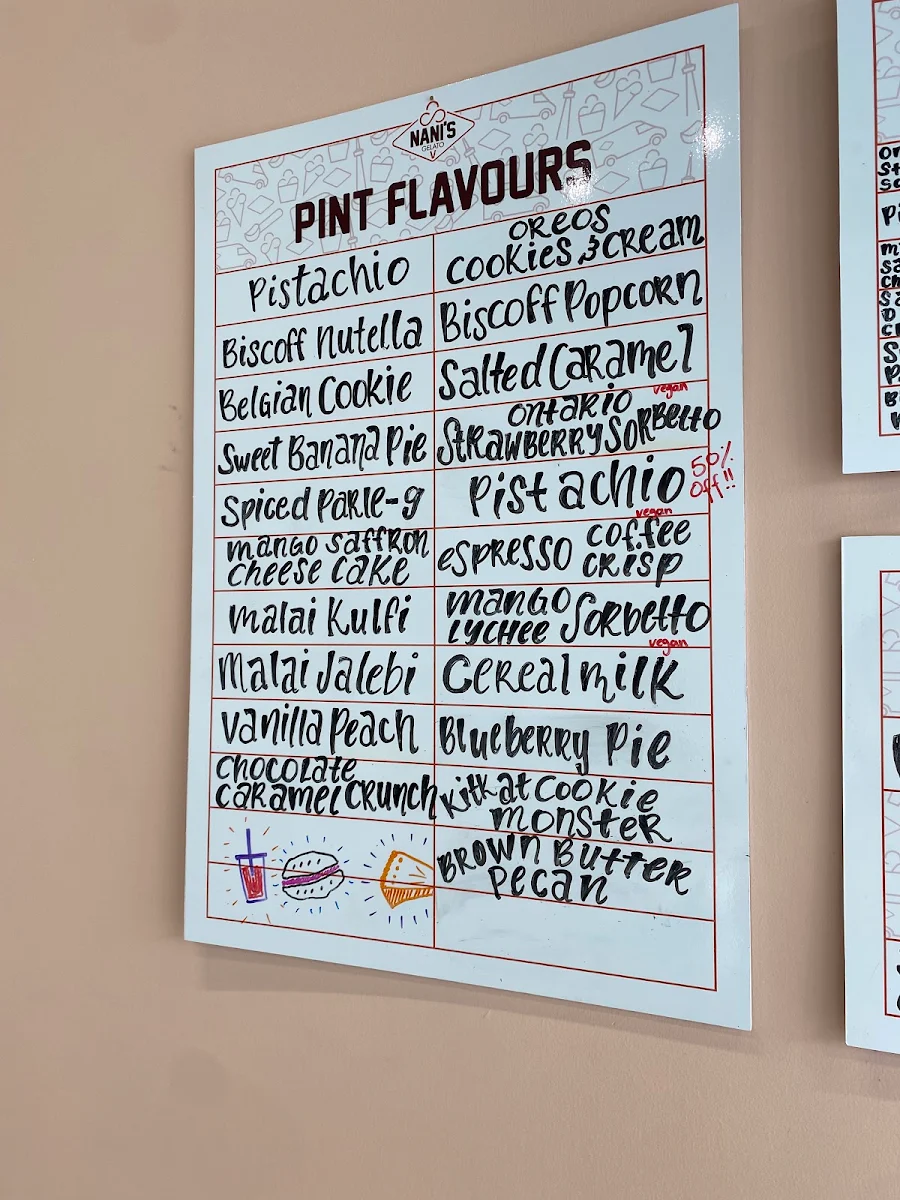 NANI'S
GELATO
PINT FLAVOURS
Pistachio
Biscoff Nutella
Belgian Cookie
Sweet Banana Pie
Spiced Parle-g
mango saffron
cheese cake
malai Kulfi
Malai Jalebi
vanilla peach
chocolate
caramel crunch
oreos
cookies & cream
Biscoff Popcorn
Salted Caramel
vegan
Ontario
Strawberry Sorbetto
Pistachio
50%
off!!
vegan
espresso coffee
crisp
mango
lychee Sorbetto
vegan
Cereal milk
Blueberry Pie
Kitkat cookie
monster
Brown Butter
pecan